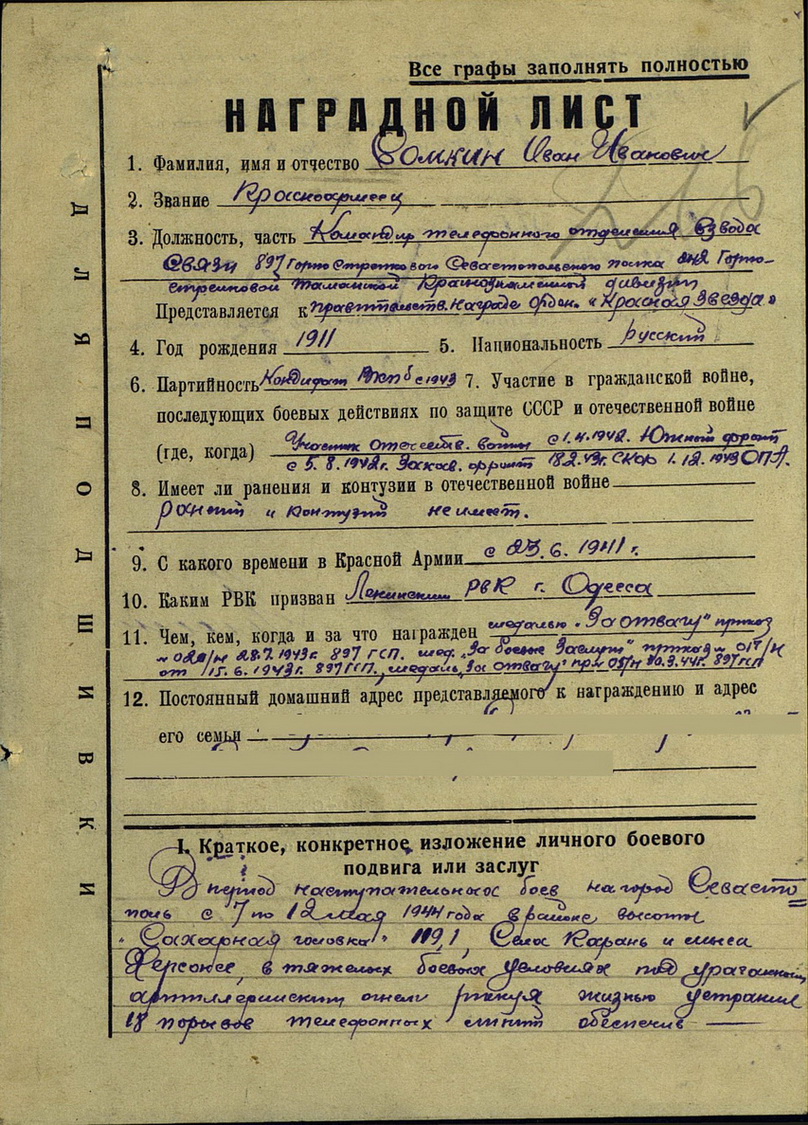 Все графы заполнять полностью
НАГРАДНОЙ ЛИСТ
1. Фамилия, имя и отчество Сомкин Иван Иванович
2. Звание Красноармеец
3. Должность, часть Командир телефонного отделения взвода
Связи 897 Горно Стрелкового Севастопольского полка 242 Горно-
стрелковой Таманской Краснознаменной дивизии
Представляется к правительств. награде Орден. «Красная Звезда»
4. Год рождения 1911 5. Национальность русский
6. Партийность Кандидат ВКПб с 1943 7. Участие в гражданской войне,
последующих боевых действиях по защите СССР и отечественной войне
(где, когда) Участник отечеств. войны с 1.4.1942. Южный фронт
с 5.8.1942г. Закав. фронт 18.2.43г. СКФ 1.12.1943 ОПА.
8. Имеет ли ранения и контузии в отечественной войне
ранений и контузий не имеет.
9. С какого времени в Красной Армии с 23.6.1941 г.
10. Каким РВК призван Ленинским РВК г. Одесса
11. Чем, кем, когда и за что награжден медалью „За отвагу" приказ
28.7.1943г. 897 ГСП. мед. „За боевые Заслуги" приказ 017/н
от 15.6.1943г. 897 ГСП., медаль „За отвагу" 30.3.44г. 897 ГСП
12. Постоянный домашний адрес представляемого к награждению и адрес
его семьи
ДЛЯ ПОДШИВКИ
I. Краткое, конкретное изложение личного боевого
подвига или заслуг
В период наступательных боев на город Севасто
поль с 7 по 12 мая 1944 года в районе высоты
„Сахарная головка" 119,1, Села Карань и мыса
Херсонес, в тяжелых боевых условиях под ураганным
артиллерийским огнем рискуя жизнью устранил
18 порывов телефонных линий обеспечив